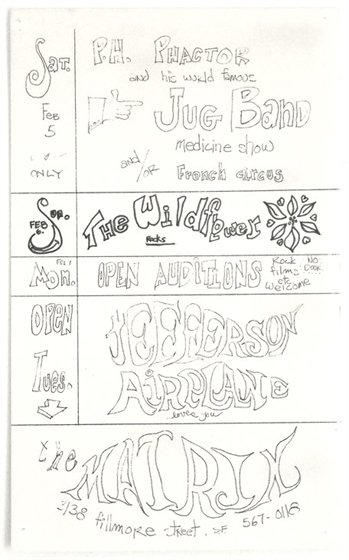 Sat.
Feb
5
ONLY
P.H. PHACTOR
and his world famous
JUG BAND
medicine show
and/or French circus
Sun.
FEB
6.
The Wildflower
Rocks
Feb 7
Mon.
OPEN AUDITIONS
Rock No
films Door
etc
welcome
OPEN
Tues.
JEFFERSON
AIRPLANE
loves you
the
MATRIX
3138 fillmore street. SF 567-0118